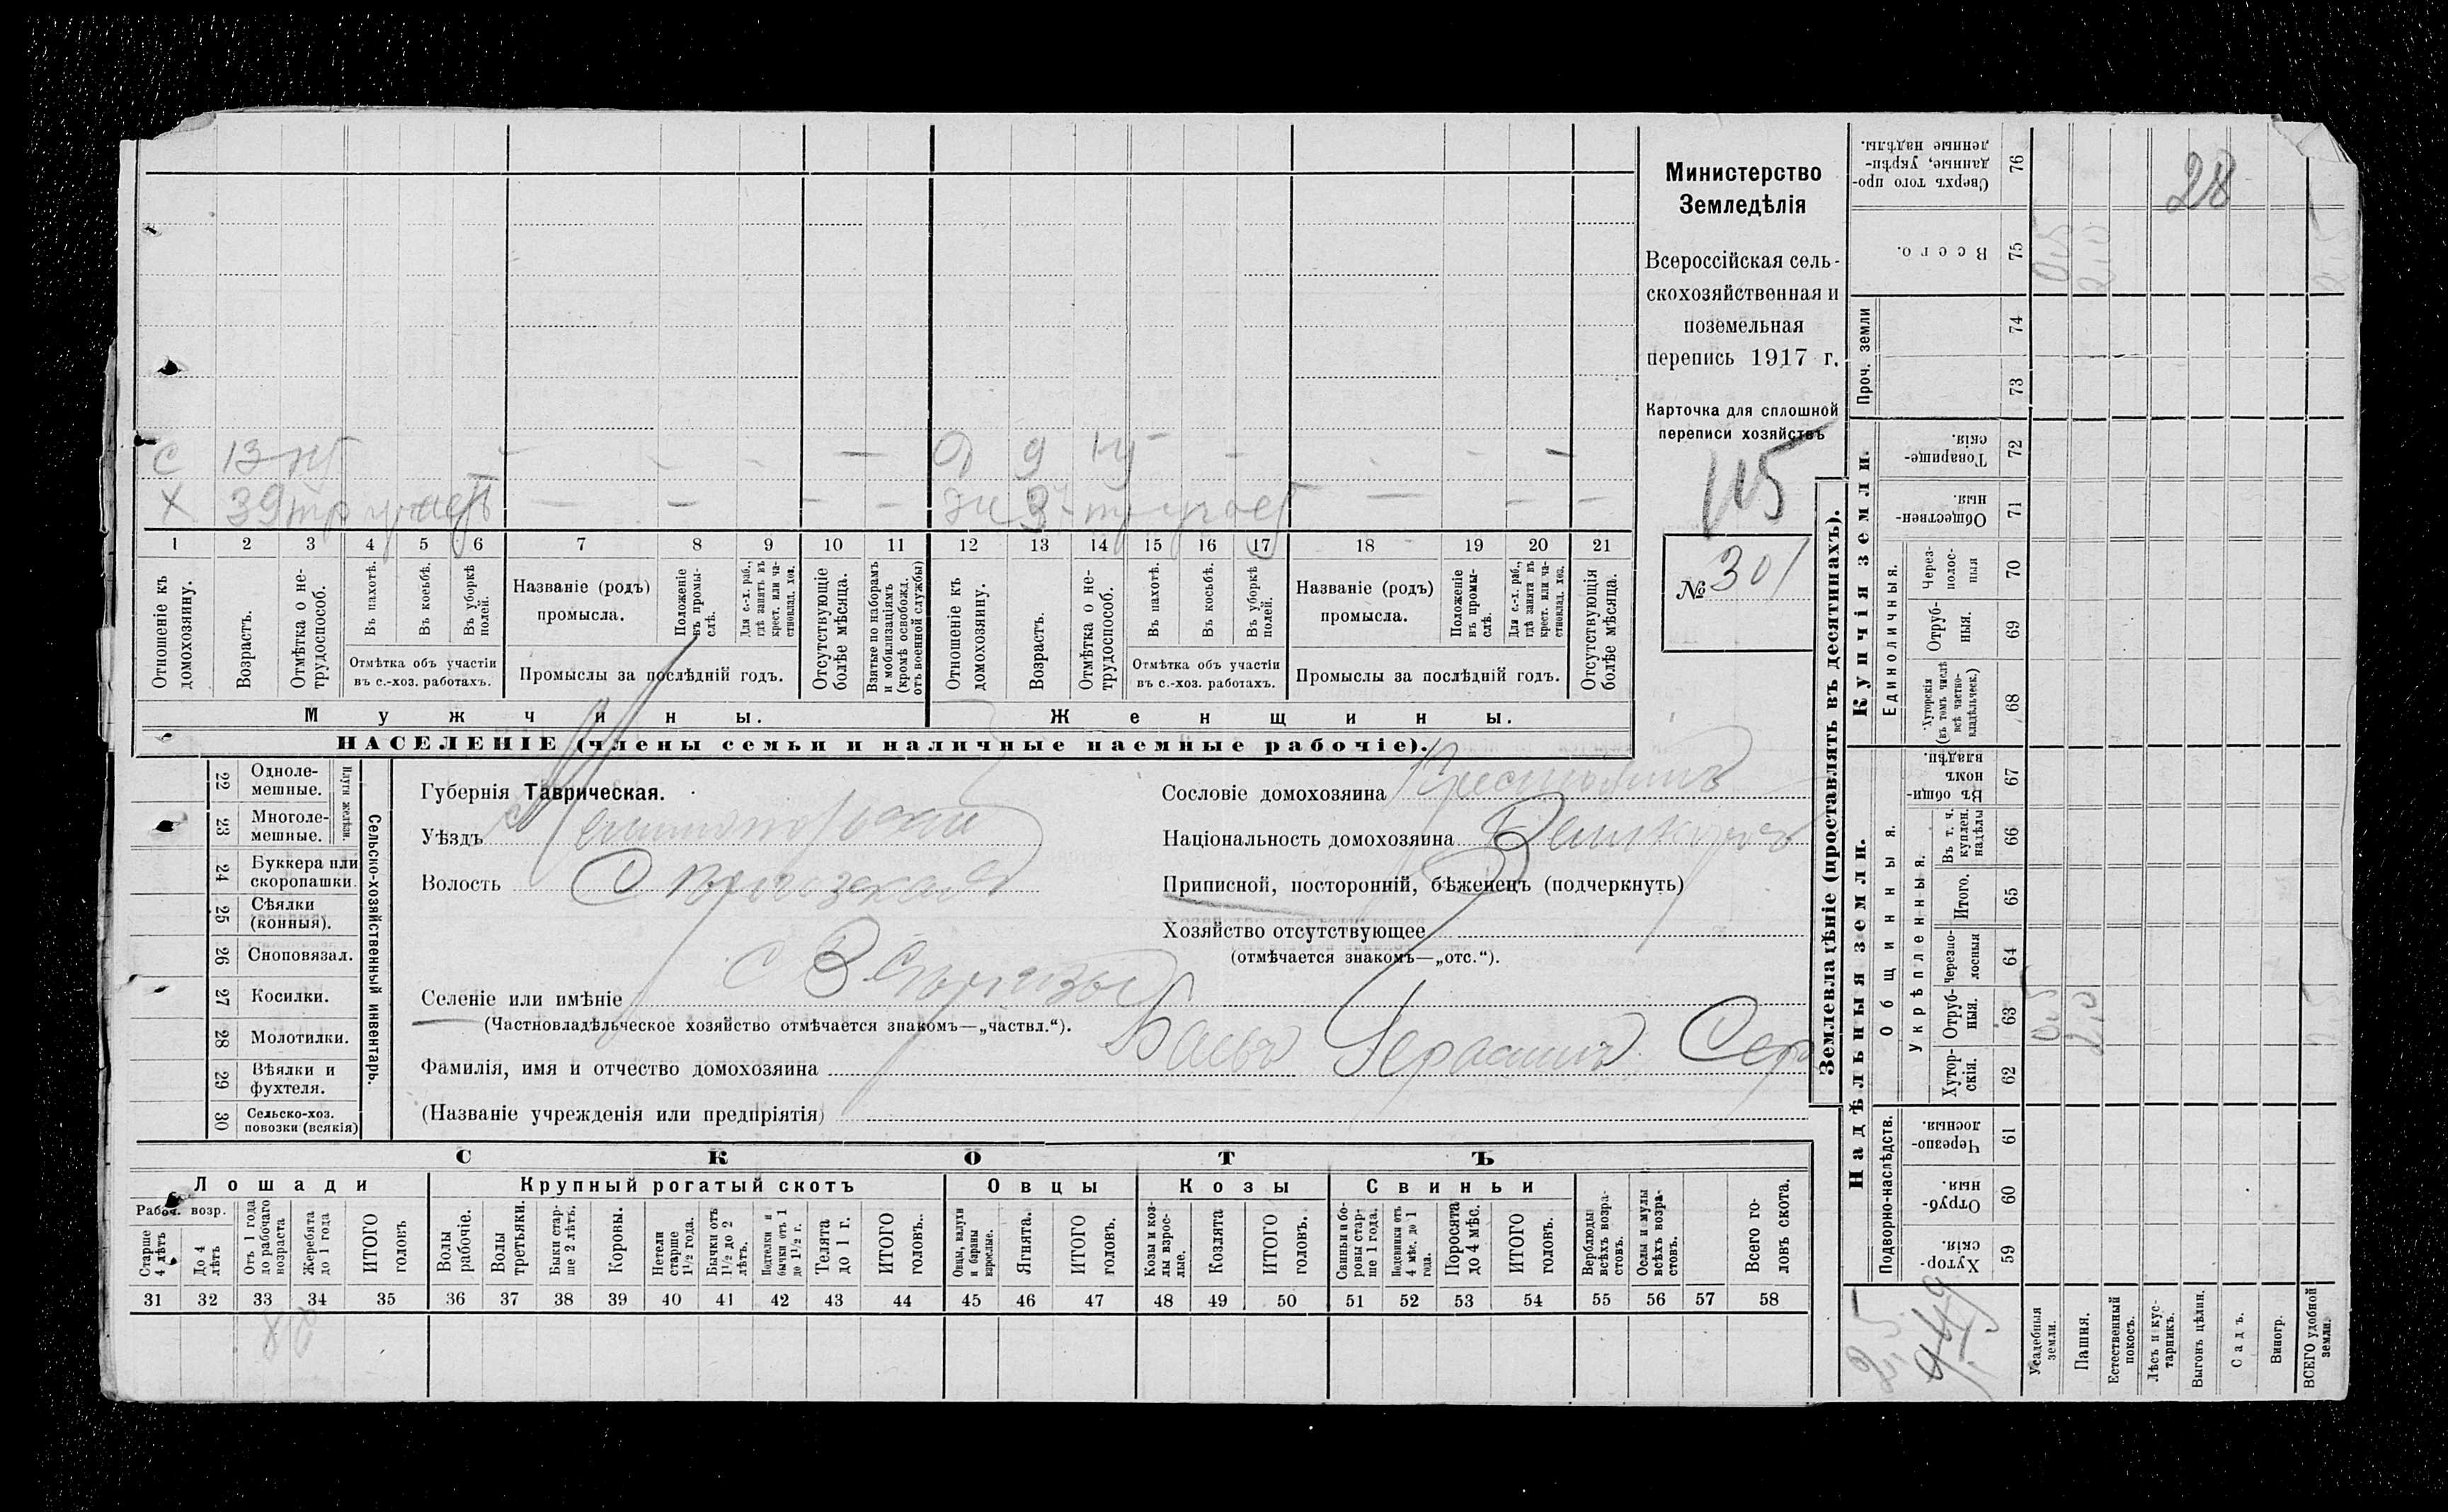 Министерство
Земледѣлія
Всероссійская сель-
скохозяйственная и
поземельная
перепись 1917 г.
Карточка для сплошной
переписи хозяйствъ
115
№ 301
С 13 О 9
Х 39 3
1 2 3 4 5 6 7 8 9 10 11 12 13 14 15 16 17 18 19 20 21
Отношеніе къ домохозяину.
Возрастъ.
Отмѣтка о не-трудоспособ.
Въ пахотѣ.
Въ косьбѣ.
Въ уборкѣ полей.
Отмѣтка объ участіи
въ с.-хоз. работахъ.
Названіе (родъ)
промысла.
Положеніе въ промы-слѣ.
Для с.-х. раб., гдѣ занятъ въ крест. или ча-стновлад. хоз.
Промыслы за послѣдній годъ.
Отсутствующіе болѣе мѣсяца.
Взятые по наборамъ и мобилизаціямъ (кромѣ освобожд. отъ военной службы)
Отношеніе къ домохозяину.
Возрастъ.
Отмѣтка о не-трудоспособ.
Въ пахотѣ.
Въ косьбѣ.
Въ уборкѣ полей.
Отмѣтка объ участіи
въ с.-хоз. работахъ.
Названіе (родъ)
промысла.
Положеніе въ промы-слѣ.
Для с.-х. раб., гдѣ занята въ крест. или ча-стновлад. хоз.
Промыслы за послѣдній годъ.
Отсутствующія болѣе мѣсяца.
Мужчины. Женщины.
НАСЕЛЕНІЕ (члены семьи и наличные наемные рабочіе).
Сельско-хозяйственный инвентарь.
Плуги желѣзн.
22 Одноле-мешные.
23 Многоле-мешные.
24 Буккера или скоропашки.
25 Сѣялки (конныя).
26 Сноповязал.
27 Косилки.
28 Молотилки.
29 Вѣялки и фухтеля.
30 Сельско-хоз. повозки (всякія)
Губернія Таврическая.
Уѣздъ
Волость
Селеніе или имѣніе
(Частновладѣльческое хозяйство отмѣчается знакомъ—„частвл.“).
Фамилія, имя и отчество домохозяина Баевъ Герасимъ Сер
(Названіе учрежденія или предпріятія)
Сословіе домохозяина Крестьянинъ
Національность домохозяина Великорос
Приписной, посторонній, бѣженецъ (подчеркнуть)
Хозяйство отсутствующее
(отмѣчается знакомъ—„отс.“).
СКОТЪ
Лошади Крупный рогатый скотъ Овцы Козы Свиньи
Рабоч. возр.
Старше 4 лѣтъ
До 4 лѣтъ
Отъ 1 года до рабочаго возраста
Жеребята до 1 года
ИТОГО головъ
Волы рабочіе.
Волы третьяки.
Быки стар-ше 2 лѣтъ.
Коровы.
Нетели старше 1½ года.
Бычки отъ 1½ до 2 лѣтъ.
Подтелки и бычки отъ 1 до 1½ г.
Телята до 1 г.
ИТОГО головъ.
Овцы, валухи и бараны взрослые.
Ягнята.
ИТОГО головъ.
Козы и коз-лы взрос-лые.
Козлята
ИТОГО головъ.
Свиньи и бо-ровы стар-ше 1 года.
Подсвинки отъ 4 мѣс. до 1 года.
Поросята до 4 мѣс.
ИТОГО головъ.
Верблюды всѣхъ возра-стовъ.
Ослы и мулы всѣхъ возра-стовъ.
Всего го-ловъ скота.
31 32 33 34 35 36 37 38 39 40 41 42 43 44 45 46 47 48 49 50 51 52 53 54 55 56 57 58
Землевладѣніе (проставлять въ десятинахъ).
Надѣльныя земли. Купчія земли. Проч. земли
Подворно-наслѣдств. Общинныя. Единоличныя.
Укрѣпленныя.
59 Хутор-скія.
60 Отруб-ныя.
61 Черезпо-лосныя.
62 Хутор-скія.
63 Отруб-ныя.
64 Черезпо-лосныя
65 Итого.
66 Въ т. ч. куплен. надѣлы
67 Въ общи-номъ владѣн.
68 Хуторскія (въ томъ числѣ всѣ частно-владѣльческ.)
69 Отруб-ныя.
70 Через-полос-ныя
71 Обществен-ныя.
72 Товарище-скія.
73
74
75 Всего.
76 Сверхъ того про-данные, укрѣп-ленные надѣлы.
28
Усадебныя земли. 0,5 0,5
Пашня. 2,0 2,0
Естественный покосъ.
Лѣсъ и кус-тарникъ.
Выгонъ цѣлин.
Садъ.
Виногр.
ВСЕГО удобной земли.